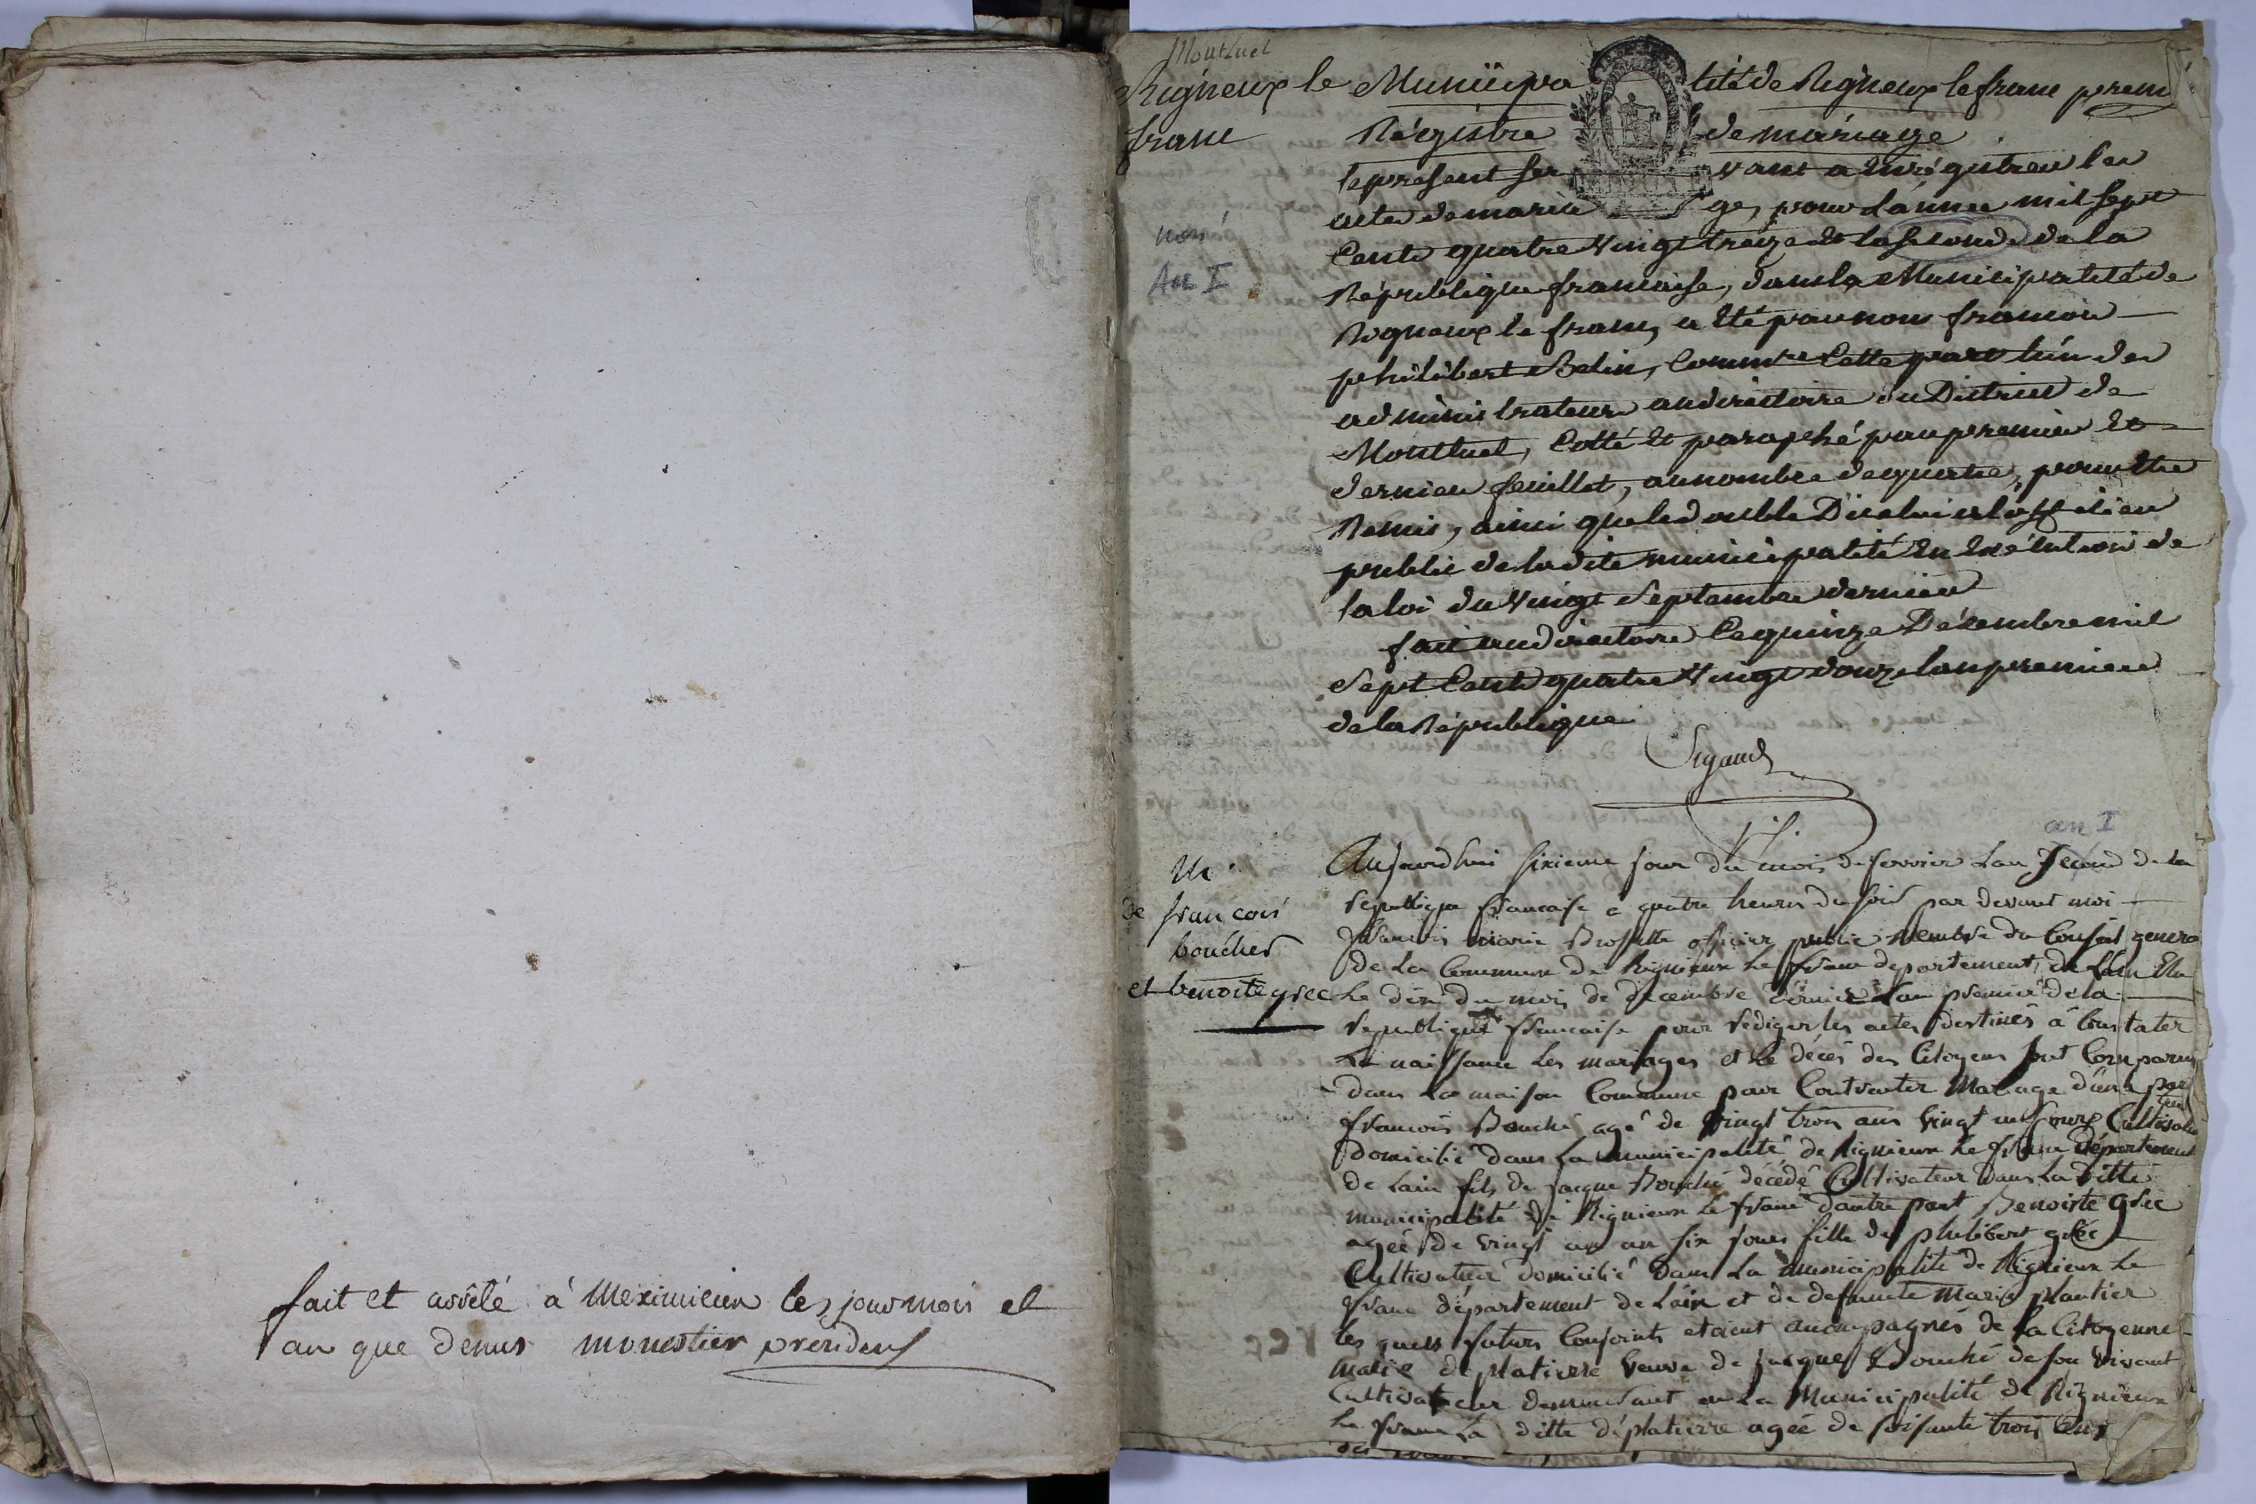 fait et arrêté à Meximieux les jour mois et
an que denus monestier president
Montluel
Rigneux le
franc
Municipalité de Rigneux le franc premier
Régistre de mariage
le present servant a Enrégistrer les
actes de mariage, pour L'année mil sept
Cents quatre Vingt treize et la seconde de la
République francaise, dans la Municipalité de
Rigneux le franc, a Eté par nous francois
philibert Belin, Comm.re Cette part l'un des
administrateurs au directoire du District de
Montluel, Cotté et paraphé par premier et
dernier feuillet, au nombre de quatre, pour Etre
Remis, ainsi que le double D'icelui a l'officier
public de la dite municipalité En Exécution de
la loi du Vingt Septembre dernier
fait au directoire Ce quinze Décembre mil
Sept Cents quatre Vingt douze l'an premiere
de la République
Sigaud
non
An I
an I
M
de francois
bouchet
et benoite grec
Aujourdhui sixieme jour du mois de fevrier Lan Second de La
republique francaise a quatre heures du soir par devant moi
francois marie officier public membre du Conseil genera
de La Commune de Rignieux Le franc departement de Lain Elu
Le dix du mois de decembre dernier Lan premier de la
republique francaise pour rediger les actes destinés a Constater
La naissance Les mariages et Le décés des Citoyens sont Comparus
dans La maison Commune pour Contracter Mariage d'une part
francois Bouché agé de vingt trois ans vingt un jours Cultivateur
domicilié dans La municipalité de Rignieux Le franc département
de Lain fils de Jacque Bouché décédé Cultivateur dans La ditte
municipalité de Rignieux Le franc dautre part Benoiste grec
agée de vingt un an six jours fille de philibert grec
Cultivateur domicilié dans La municipalité de Rignieux Le
franc département de Lain et de defuncte Marie plantier
les quels futurs Conjoints etoient accompagnés de La Citoyenne
marie déplatiere veuve de jacques Bouché de son vivant
Cultivateur demeurant en La Municipalité de Rignieux
Le franc La ditte déplatiere agée de soisante trois ans